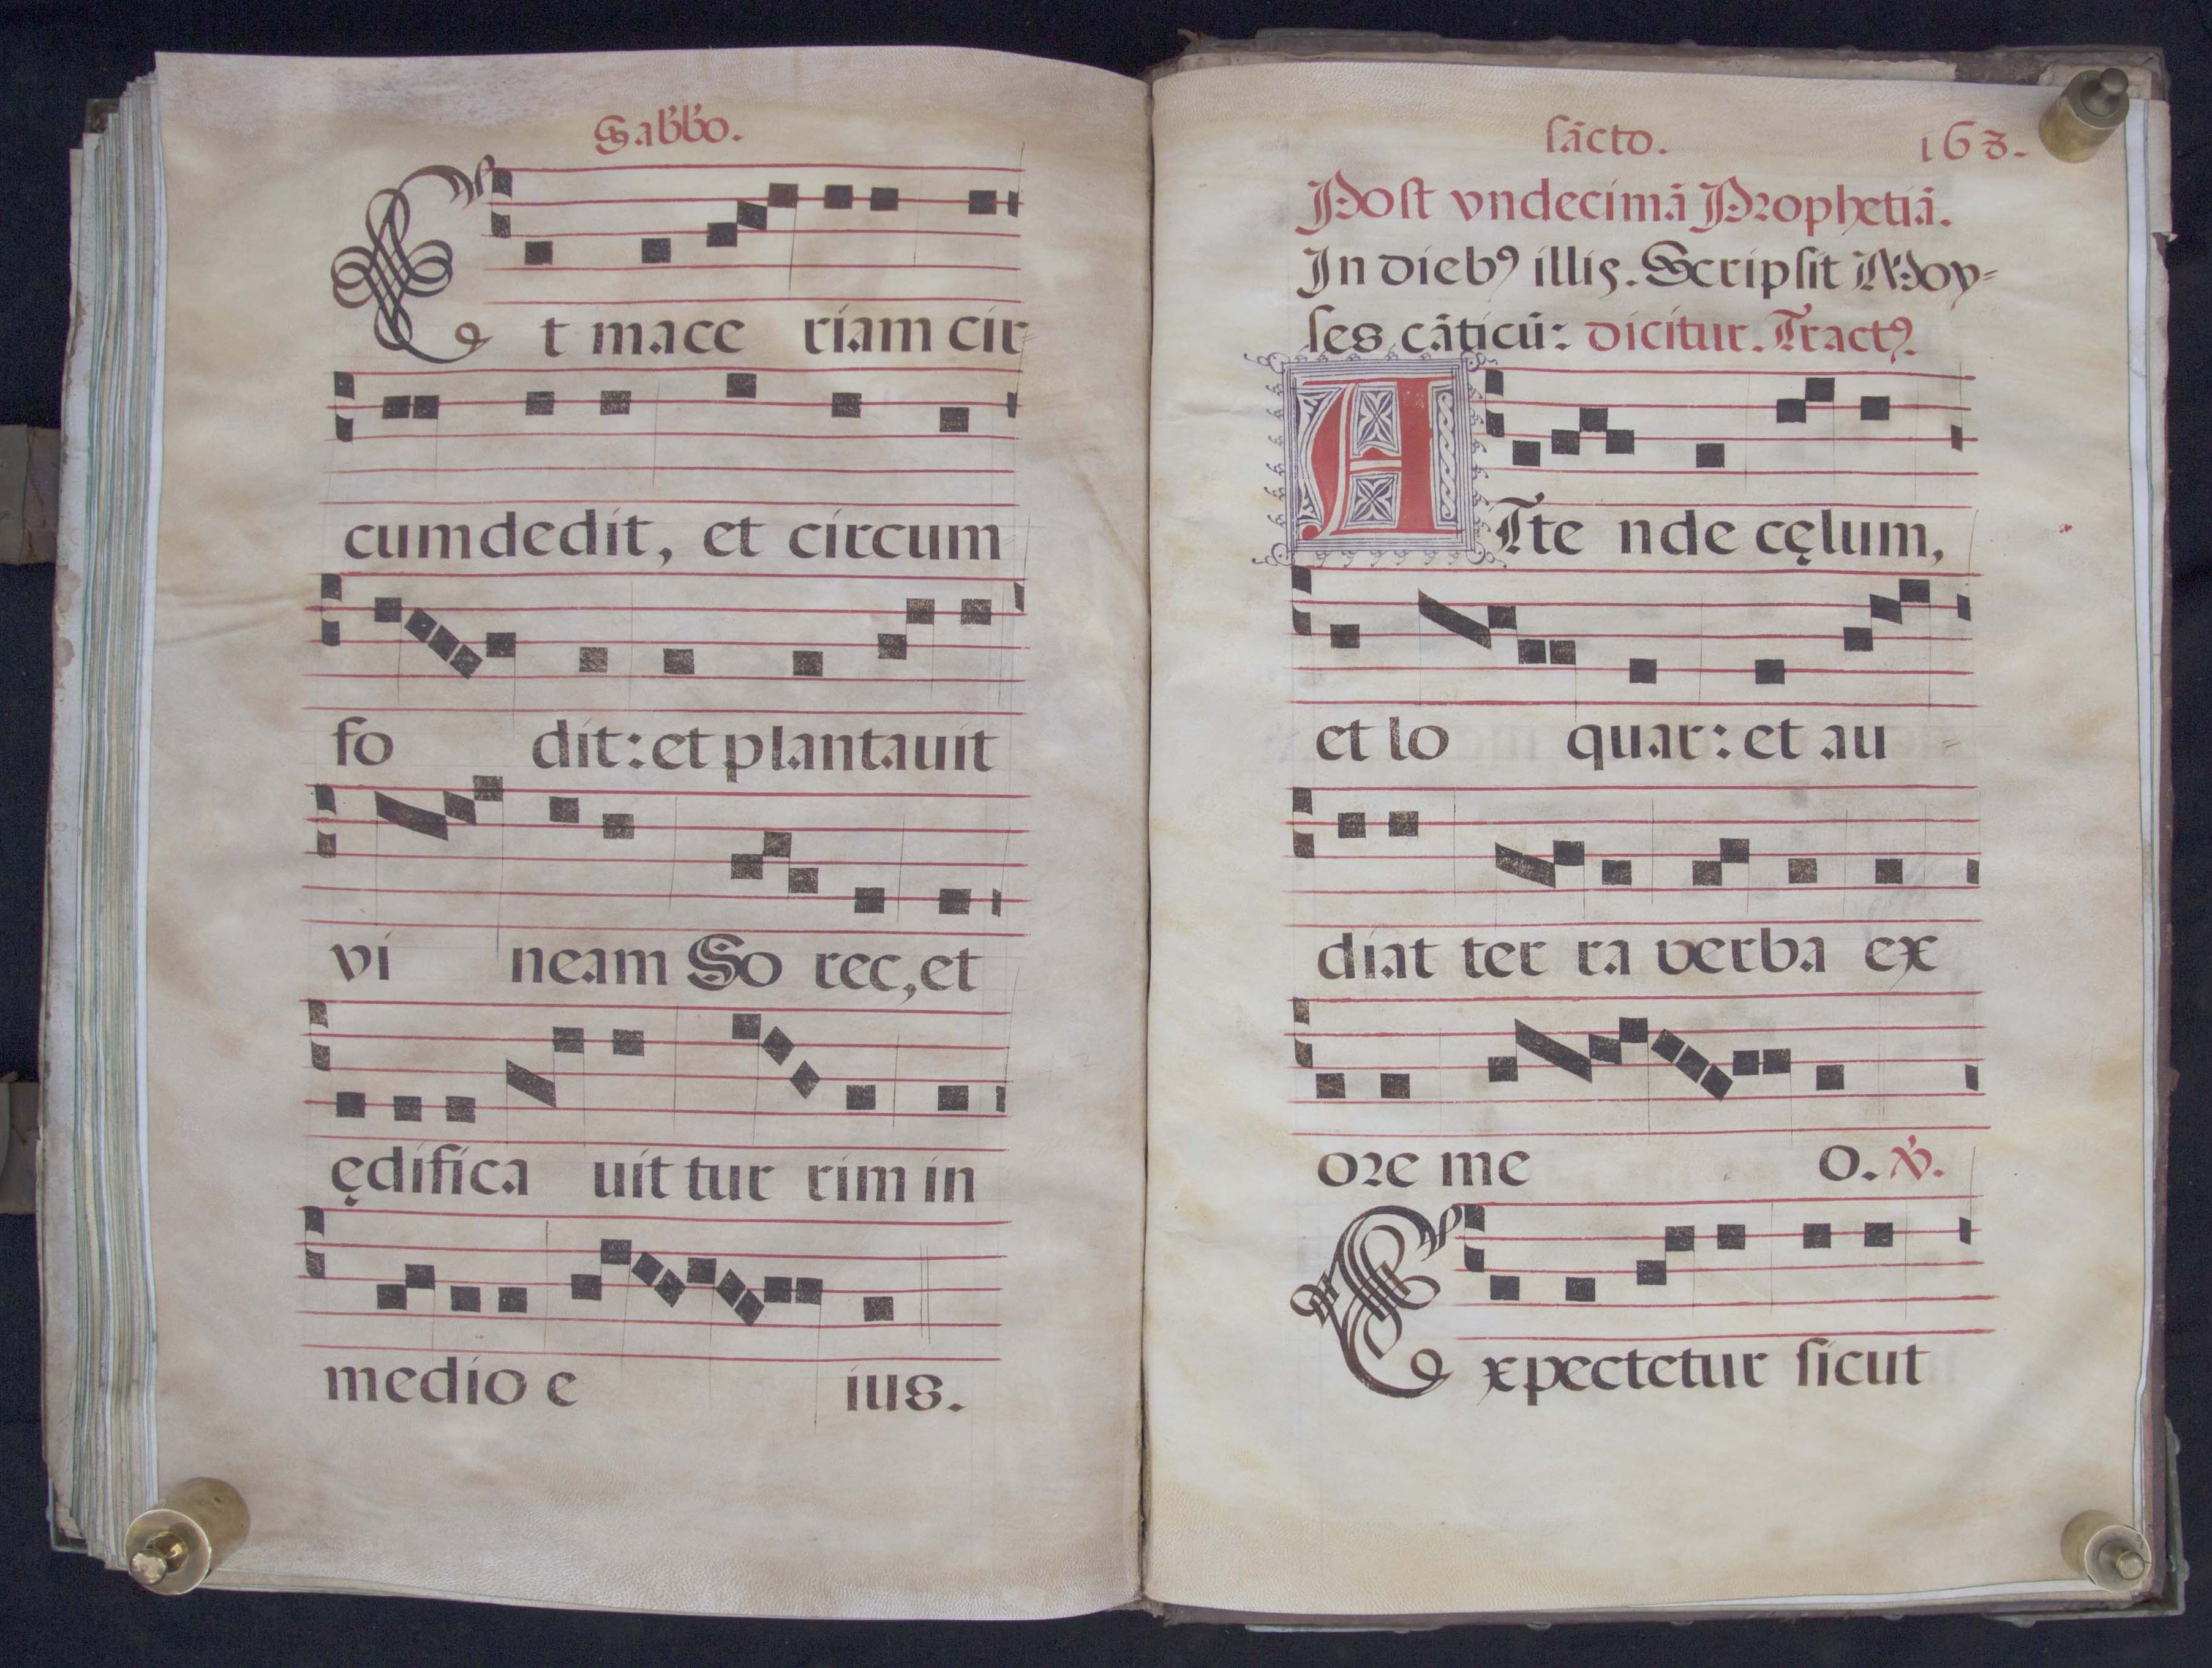 Sabb̄o.
Et mace riam cir=
cumdedit, et circum
fo dit: et plantauit
vi neam So rec, et
ędifica uit tur rim in
medio e ius.
sācto. 163.
Post vndecimā Prophetiā.
In diebꝰ illis. Scripsit Moy=
ses cāticū: dicitur. Tractꝰ.
ATte nde cęlum,
et lo quar: et au =
diat ter ra verba ex
ore me o. ℣.
Expectetur sicut